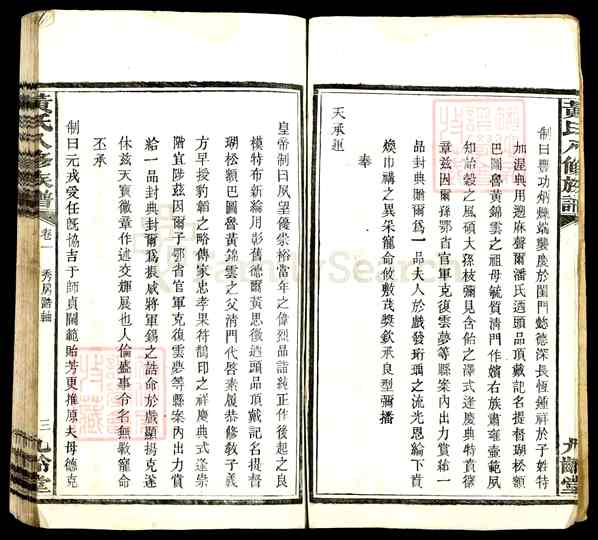 黃氏八修族譜
九齡堂
制曰豐功炳煥端襲慶於閨門懿德深長恆鍾祥於子姓特
加渥典用邇麻聲爾潘氏迺頭品頂戴記名提督瑚松額
巴圖魯黃錦雲之祖母毓質淸門作嬪右族肅雍壼範夙
知飴穀之風碩大孫枝彌見含飴之澤式逢慶典特賁徽
章茲因爾孫鄂省官軍克復雲夢等縣案內出力賞給一
品封典贈爾爲一品夫人於戲發珩瑀之流光恩綸下賁
煥巾褵之異采寵命攸敷茂獎欽承良型彌播
奉
天承運
皇帝制曰夙望優崇裕當年之偉烈品詣純正作後起之良
模特布新綸用彰舊德爾黃思徵迺頭品頂戴記名提督
瑚松額巴圖魯黃錦雲之父淸門代啓素履恭修敎子義
方早授豹韜之略傳家忠孝果符鵲印之祥慶典式逢崇
階宜陟茲因爾子鄂省官軍克復雲夢等縣案內出力賞
給一品封典封爾爲振威將軍錫之誥命於戲顯揚克遂
休茲天寶徽章作述交輝展也人倫盛事令名無斁寵命
丕承
制曰元戎愛任旣協吉于師貞閫範貽芳更推原夫母德克
黃氏八修族譜
卷一
秀房誥軸
三
九齡堂